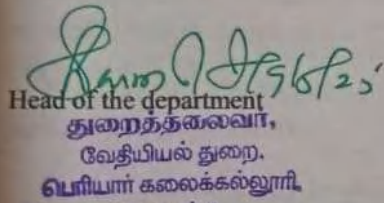 Head of the department
துறைத்தலைவர்,
வேதியியல் துறை.
பெரியார் கலைக்கல்லூரி,